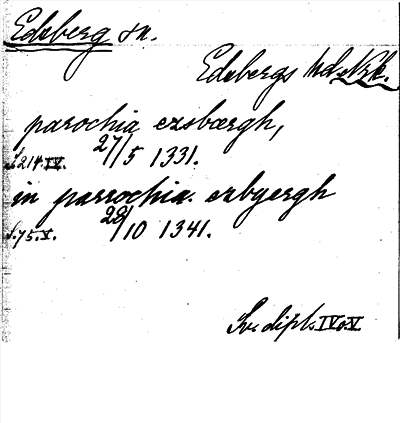 Edsberg sn.
Edsbergs hd. Nrk.
parochia ezsbærgh,
s. 214. IV. 27/5 1331.
in parrochia. ezbyergh
s. 75. V. 28/10 1341.
Sv. dipl. IV o. V